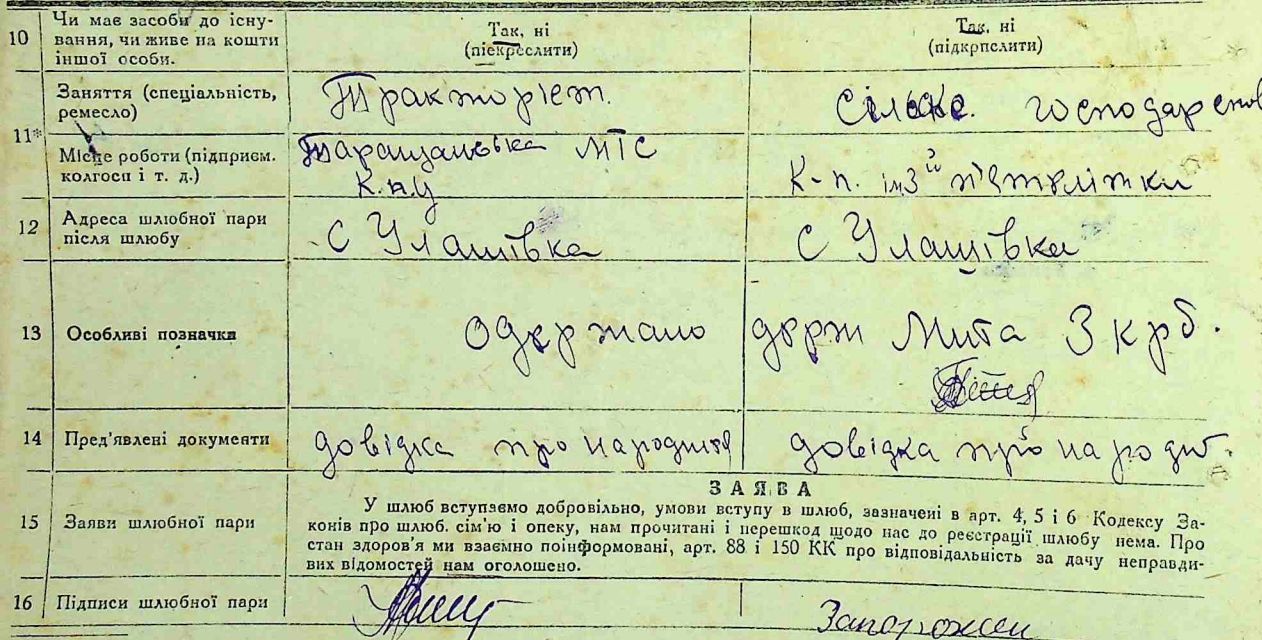 10 Чи має засоби до існування, чи живе на кошти іншої особи. Так, ні (підкреслити) Так, ні (підкрпслити)
11* Заняття (спеціальність, ремесло) Тракторіст. Сільске. господарство
Місце роботи (підприєм. колгосп і т. д.) Таращанська МТС К.п.у К-п. ім 3ій п'ятилітки
12 Адреса шлюбної пари після шлюбу С Улашівка С Улашівка
13 Особливі позначки Одержано держ Мита 3 крб.
14 Пред'явлені документи довідка про народження довідка про народж.
15 Заяви шлюбної пари
ЗАЯВА
У шлюб вступаємо добровільно, умови вступу в шлюб, зазначені в арт. 4, 5 і 6 Кодексу За-
конів про шлюб. сім'ю і опеку, нам прочитані і перешкод щодо нас до реєстрації шлюбу нема. Про
стан здоров'я ми взаємно поінформовані, арт. 88 і 150 КК про відповідальність за дачу неправди-
вих відомостей нам оголошено.
16 Підписи шлюбної пари Запорожец